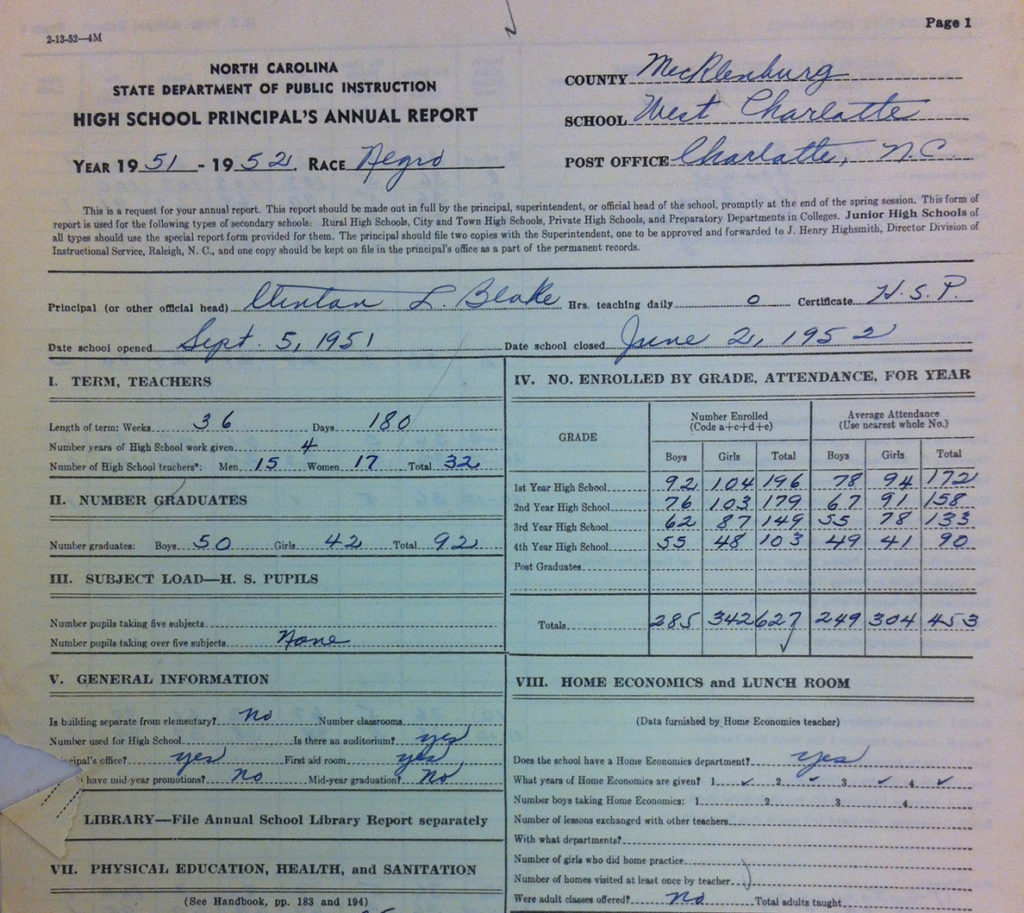 Page 1
2-13-52—4M
NORTH CAROLINA
STATE DEPARTMENT OF PUBLIC INSTRUCTION
HIGH SCHOOL PRINCIPAL'S ANNUAL REPORT
YEAR 1951 - 1952. RACE Negro
COUNTY Mecklenburg
SCHOOL West Charlotte
POST OFFICE Charlotte, N.C.
This is a request for your annual report. This report should be made out in full by the principal, superintendent, or official head of the school, promptly at the end of the spring session. This form of
report is used for the following types of secondary schools: Rural High Schools, City and Town High Schools, Private High Schools, and Preparatory Departments in Colleges. Junior High Schools of
all types should use the special report form provided for them. The principal should file two copies with the Superintendent, one to be approved and forwarded to J. Henry Highsmith, Director Division of
Instructional Service, Raleigh, N. C., and one copy should be kept on file in the principal's office as a part of the permanent records.
Principal (or other official head) Clinton L. Blake Hrs. teaching daily 0 Certificate H.S.P.
Date school opened Sept. 5, 1951 Date school closed June 2, 1952
I. TERM, TEACHERS
Length of term: Weeks 36 Days 180
Number years of High School work given 4
Number of High School teachers*: Men 15 Women 17 Total 32
II. NUMBER GRADUATES
Number graduates: Boys 50 Girls 42 Total 92
III. SUBJECT LOAD—H. S. PUPILS
Number pupils taking five subjects
Number pupils taking over five subjects None
IV. NO. ENROLLED BY GRADE, ATTENDANCE, FOR YEAR
GRADE
Number Enrolled
(Code a+c+d+e)
Average Attendance
(Use nearest whole No.)
Boys Girls Total Boys Girls Total
1st Year High School 92 104 196 78 94 172
2nd Year High School 76 103 179 67 91 158
3rd Year High School 62 87 149 55 78 133
4th Year High School 55 48 103 49 41 90
Post Graduates
Totals 285 342 627 249 304 453
V. GENERAL INFORMATION
Is building separate from elementary? no Number classrooms
Number used for High School Is there an auditorium? yes
cipal's office? yes First aid room yes
have mid-year promotions? no Mid-year graduation? No
LIBRARY—File Annual School Library Report separately
VII. PHYSICAL EDUCATION, HEALTH, and SANITATION
(See Handbook, pp. 183 and 194)
VIII. HOME ECONOMICS and LUNCH ROOM
(Data furnished by Home Economics teacher)
Does the school have a Home Economics department? yes
What years of Home Economics are given? 1 ✓ 2 ✓ 3 ✓ 4 ✓
Number boys taking Home Economics: 1 2 3 4
Number of lessons exchanged with other teachers
With what departments?
Number of girls who did home practice
Number of homes visited at least once by teacher
Were adult classes offered? no Total adults taught